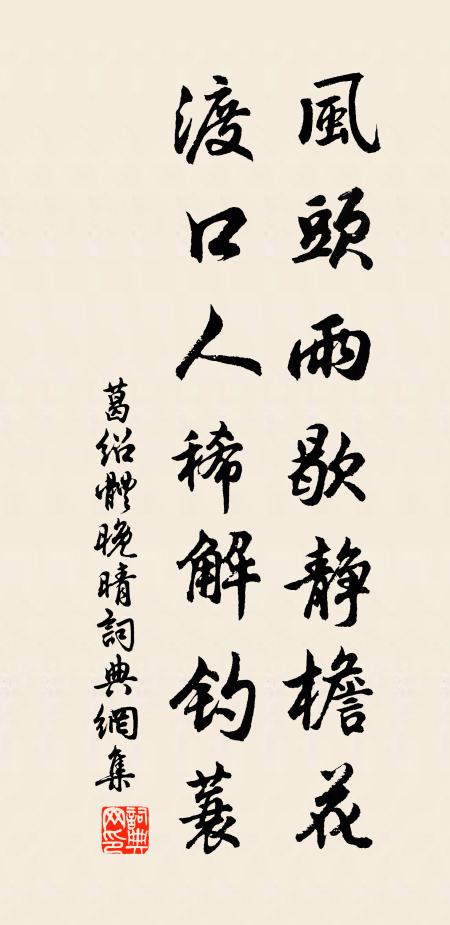 風頭雨歇静檐花
渡口人稀解钓蓑
葛绍體晚晴詞典網集
詞典网印